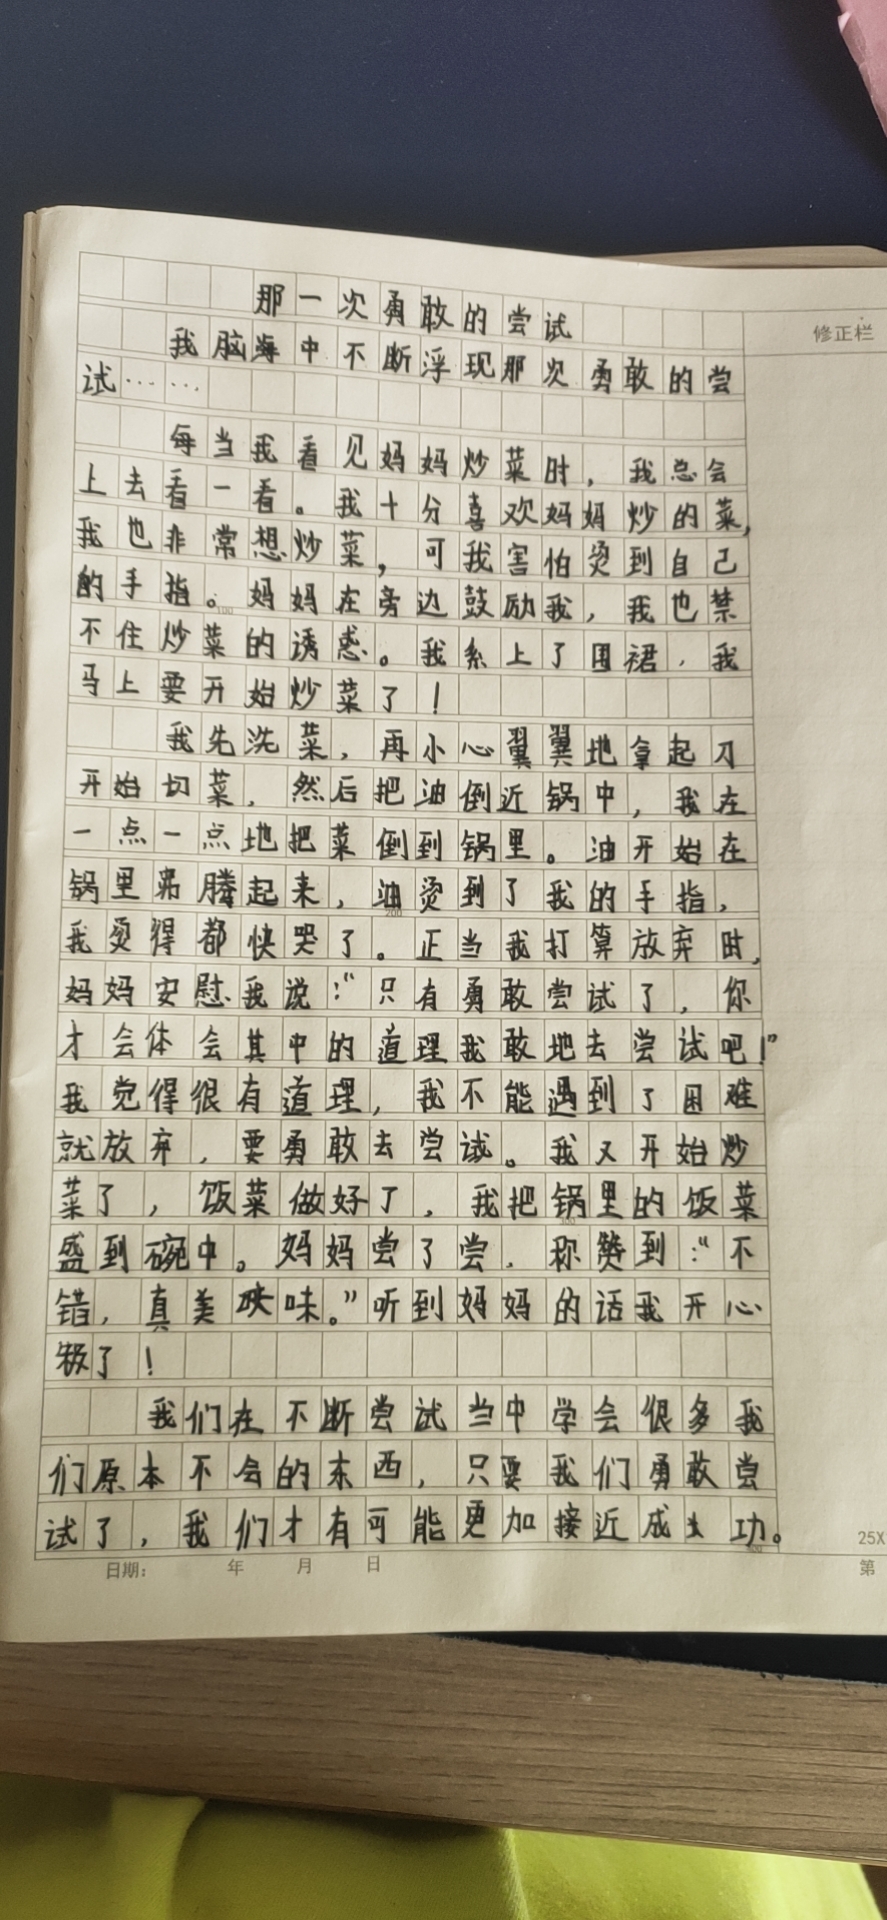 那一次勇敢的尝试
修正栏
我脑海中不断浮现那次勇敢的尝
试……
每当我看见妈妈炒菜时，我总会
上去看一看。我十分喜欢妈妈炒的菜，
我也非常想炒菜，可我害怕烫到自己
的手指。妈妈在旁边鼓励我，我也禁
100
不住炒菜的诱惑。我系上了围裙，我
马上要开始炒菜了！
我先洗菜，再小心翼翼地拿起刀
开始切菜，然后把油倒近锅中，我在
一点一点地把菜倒到锅里。油开始在
锅里沸腾起来，油烫到了我的手指，
200
我烫得都快哭了。正当我打算放弃时，
妈妈安慰我说：“只有勇敢尝试了，你
才会体会其中的道理我敢地去尝试吧！”
我觉得很有道理，我不能遇到了困难
就放弃，要勇敢去尝试。我又开始炒
菜了，饭菜做好了，我把锅里的饭菜
300
盛到碗中。妈妈尝了尝，称赞到：“不
错，真美味。”听到妈妈的话我开心
极了！
我们在不断尝试当中学会很多我
们原本不会的东西，只要我们勇敢尝
试了，我们才有可能更加接近成功。
400
25X
日期： 年 月 日
第